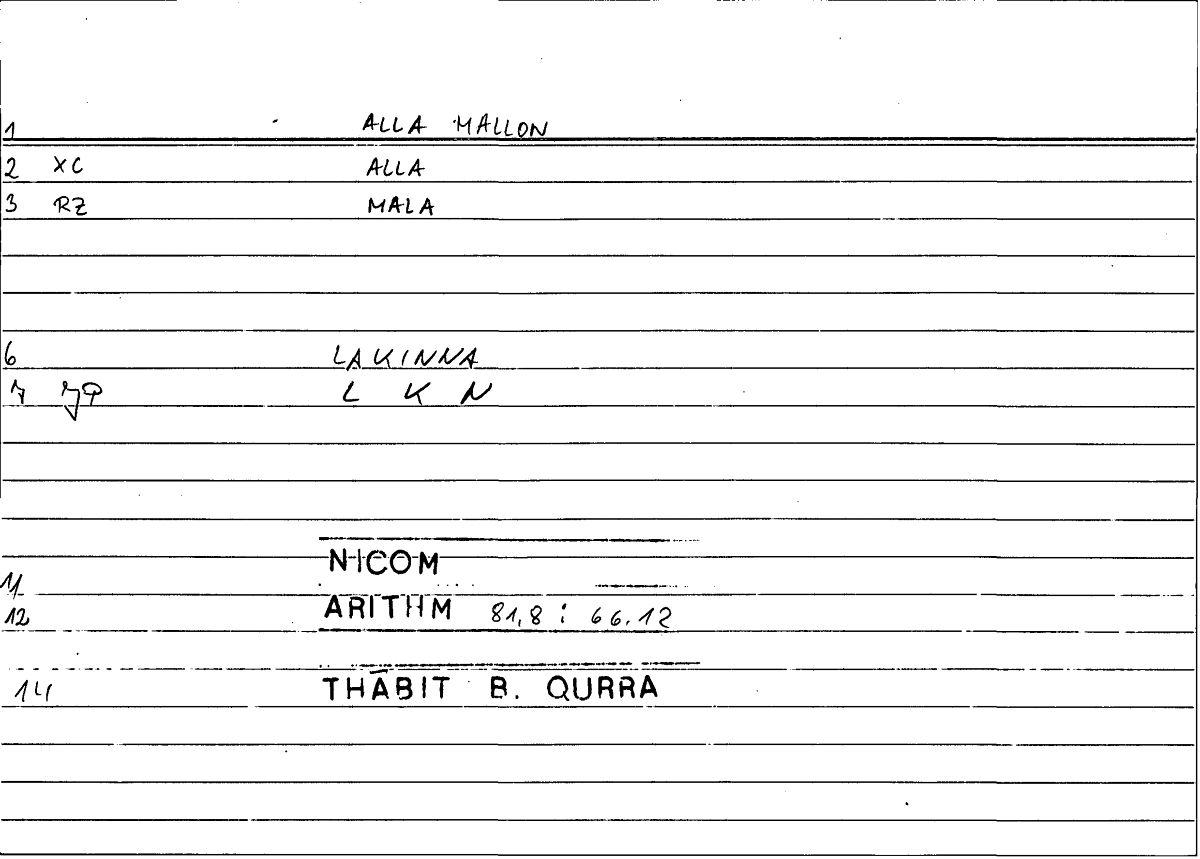 1 ALLA MALLON
2 XC ALLA
3 RZ MALA
6 LAKINNA
7 L K N
NICOM
11
12 ARITHM 81,8 : 66.12
14 THĀBIT B. QURRA